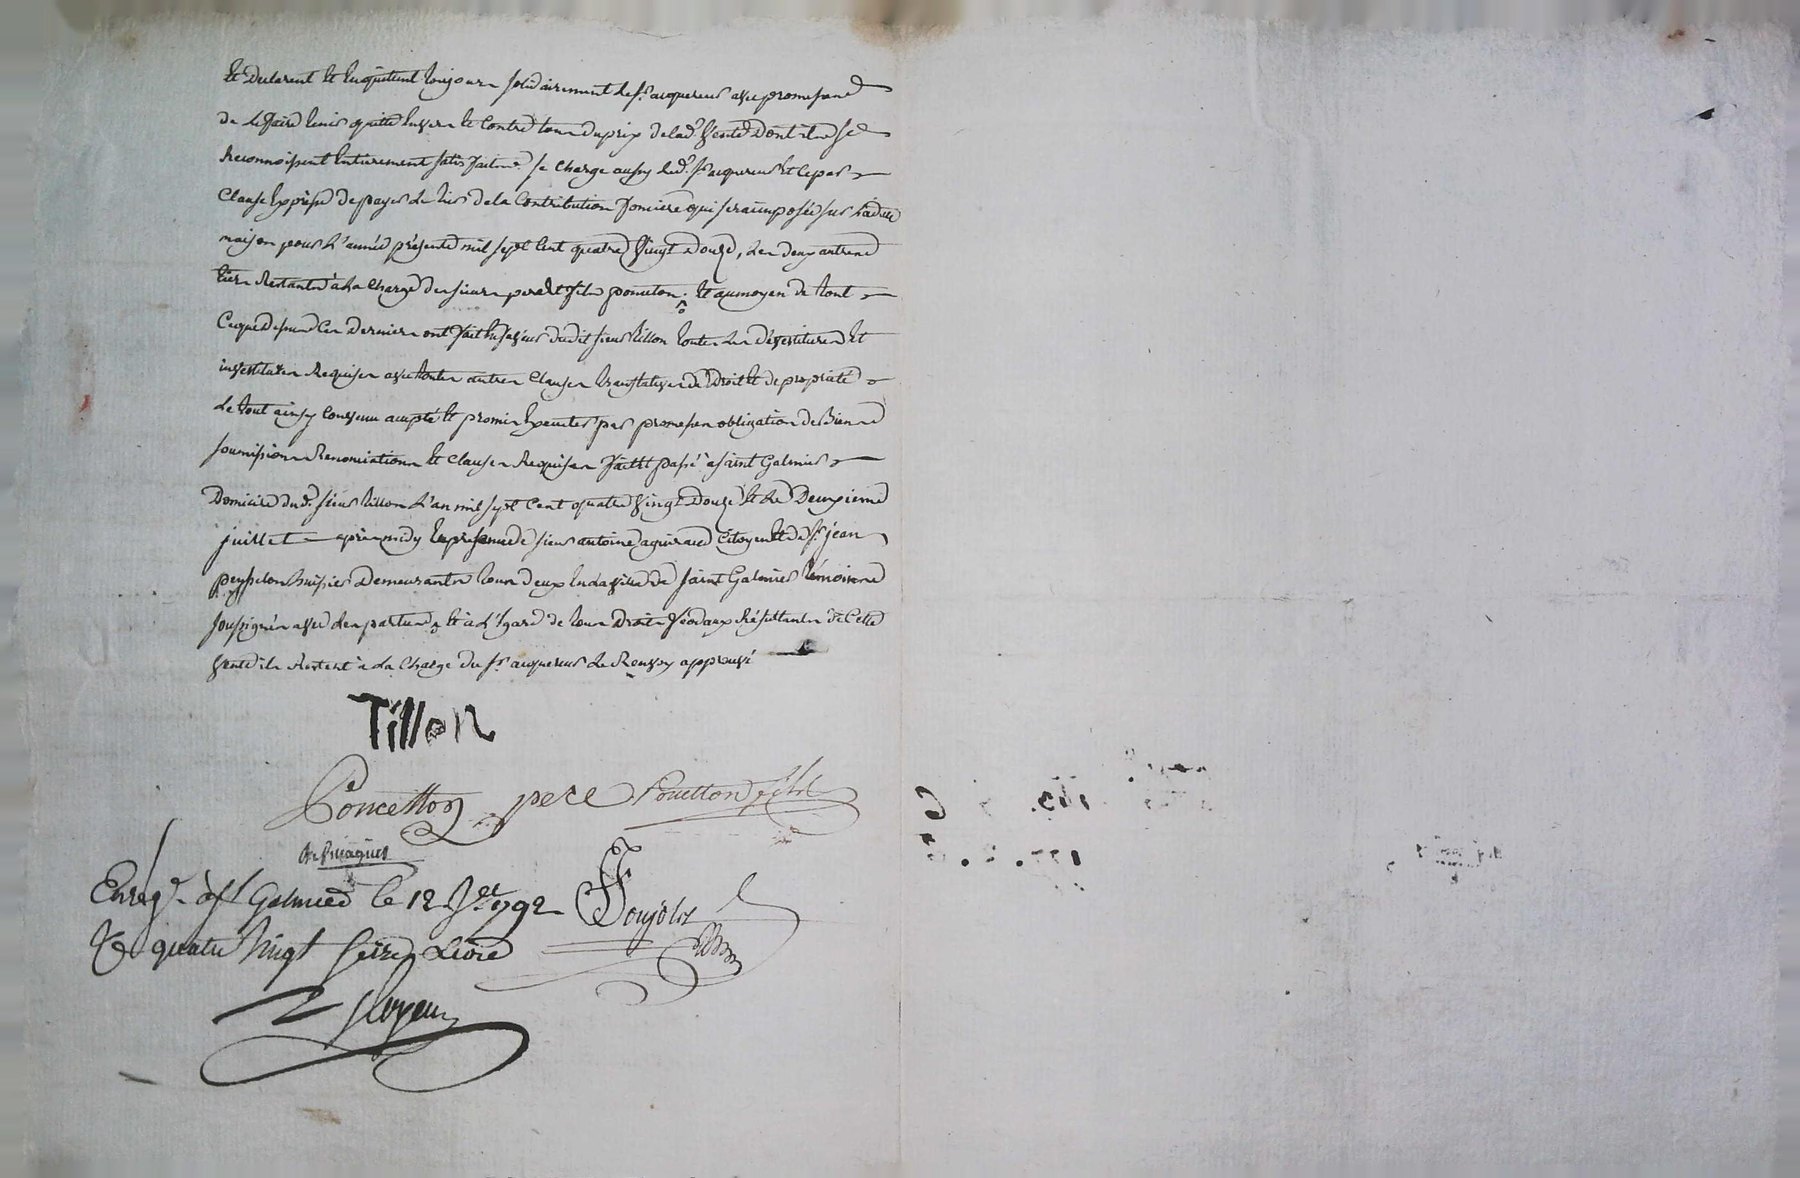 Et Declarent Et Enquittent toujours solidairement le sr. acquereur avec promesse
de Le faire tenir quitte Envers Et Contre tous du prix de lad. Vente Dont ils se
Reconnoissent Entierement satisfaits se Charge aussy led. sr. acquereur Et ce par
Clause Expresse de payer Le tier de la Contribution fonciere qui sera imposée sur Ladite
maison pour L'année presente mil sept Cent quatre Vingt Douze, Les deux autres
tiers Restants à La Charge des sieurs pere Et fils ponceton. Et au moyen de tout
Ce que dessus Ces Derniers ont fait En faveur dudit sieur tillon toutes Les dévestitures Et
investitures Requises avec toutes autres Clauses translatives de Droit Et de propriété
Le tout ainsy Convenu accepté Et promis Executer par promesses obligation de Biens
soumissions Renonciations Et Clauses Requises fait Et passé a saint Galmier
Domicile dud. sieur tillon L'an mil sept Cent quatre Vingt Douze Et Le Deuxieme
juillet après midy En presence de sieur antoine aguiraud Citoyen Et de sr. jean
peysselon huissier Demeurants tous deux En la Ville de saint Galmier témoins
soussignés avec Les parties Et à L'Egard de tous Droits féodaux Résultants de Cette
Vente ils Restent à La Charge du sr. acquereur Le Renvoy approuvé
Tillon
Poncetton pere Poncetton fils
Enregé. à st Galmier le 12 Jet 1792
quatre Vingt seize Livre